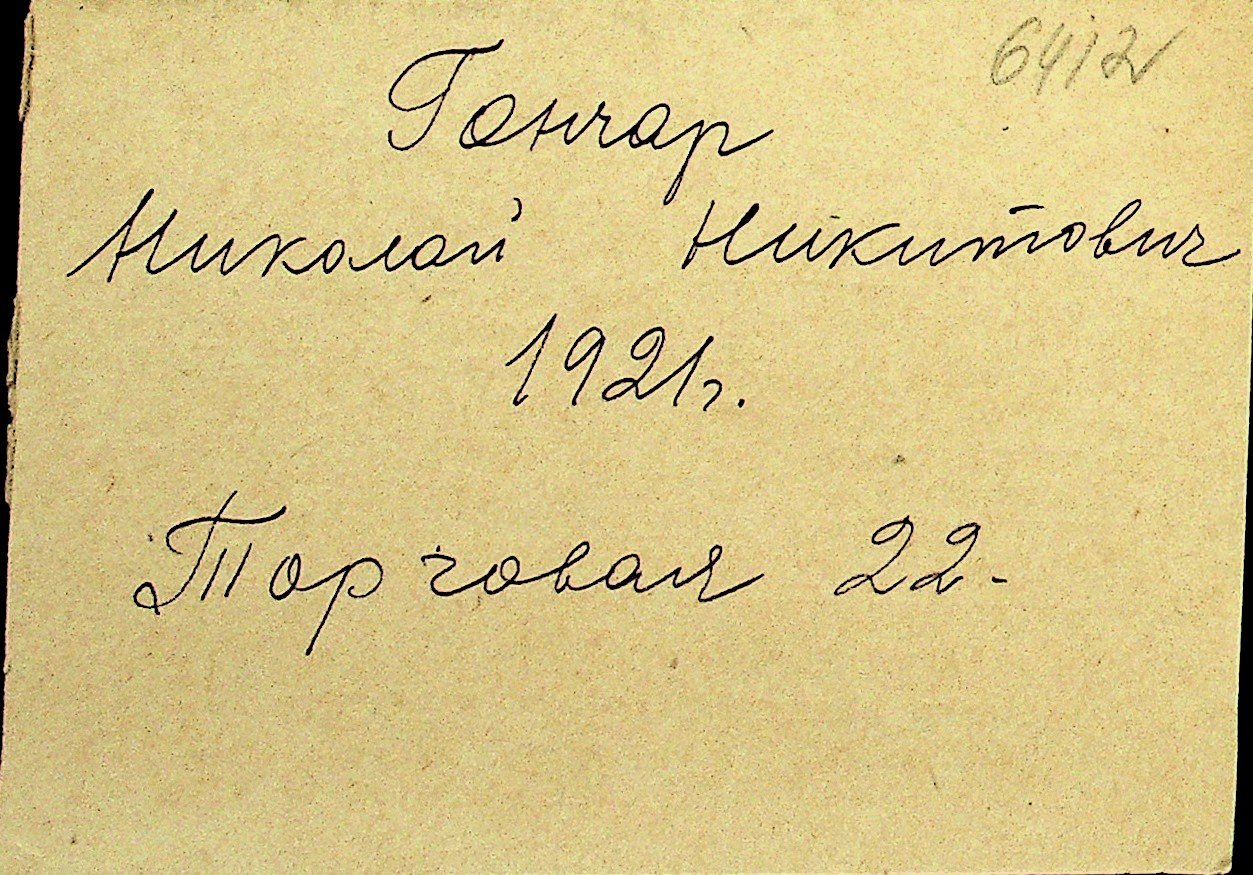 6412
Гончар
Николай Никитович
1921г.
Торговая 22-